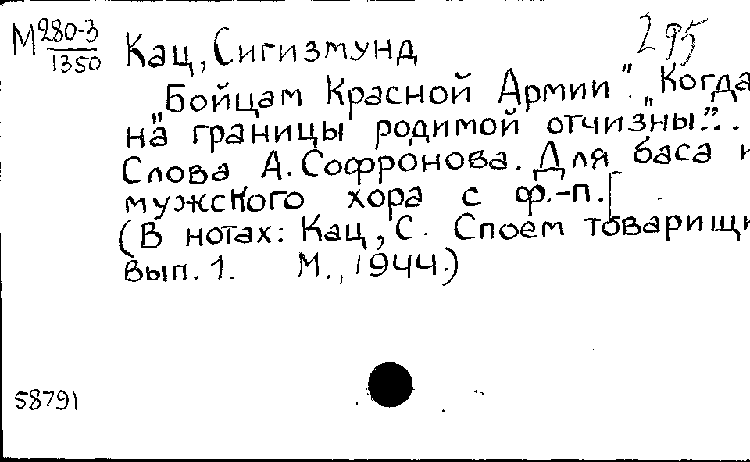 М 280-3
1350
295
Кац, Сигизмунд
„Бойцам Красной Армии". „Когда
на границы родимой отчизны"...
Слова А. Софронова. Для баса и
мужского хора с ф.-п.[
(В нотах: Кац, С. Споем товарищи
Вып. 1. М., 1944.)
58791